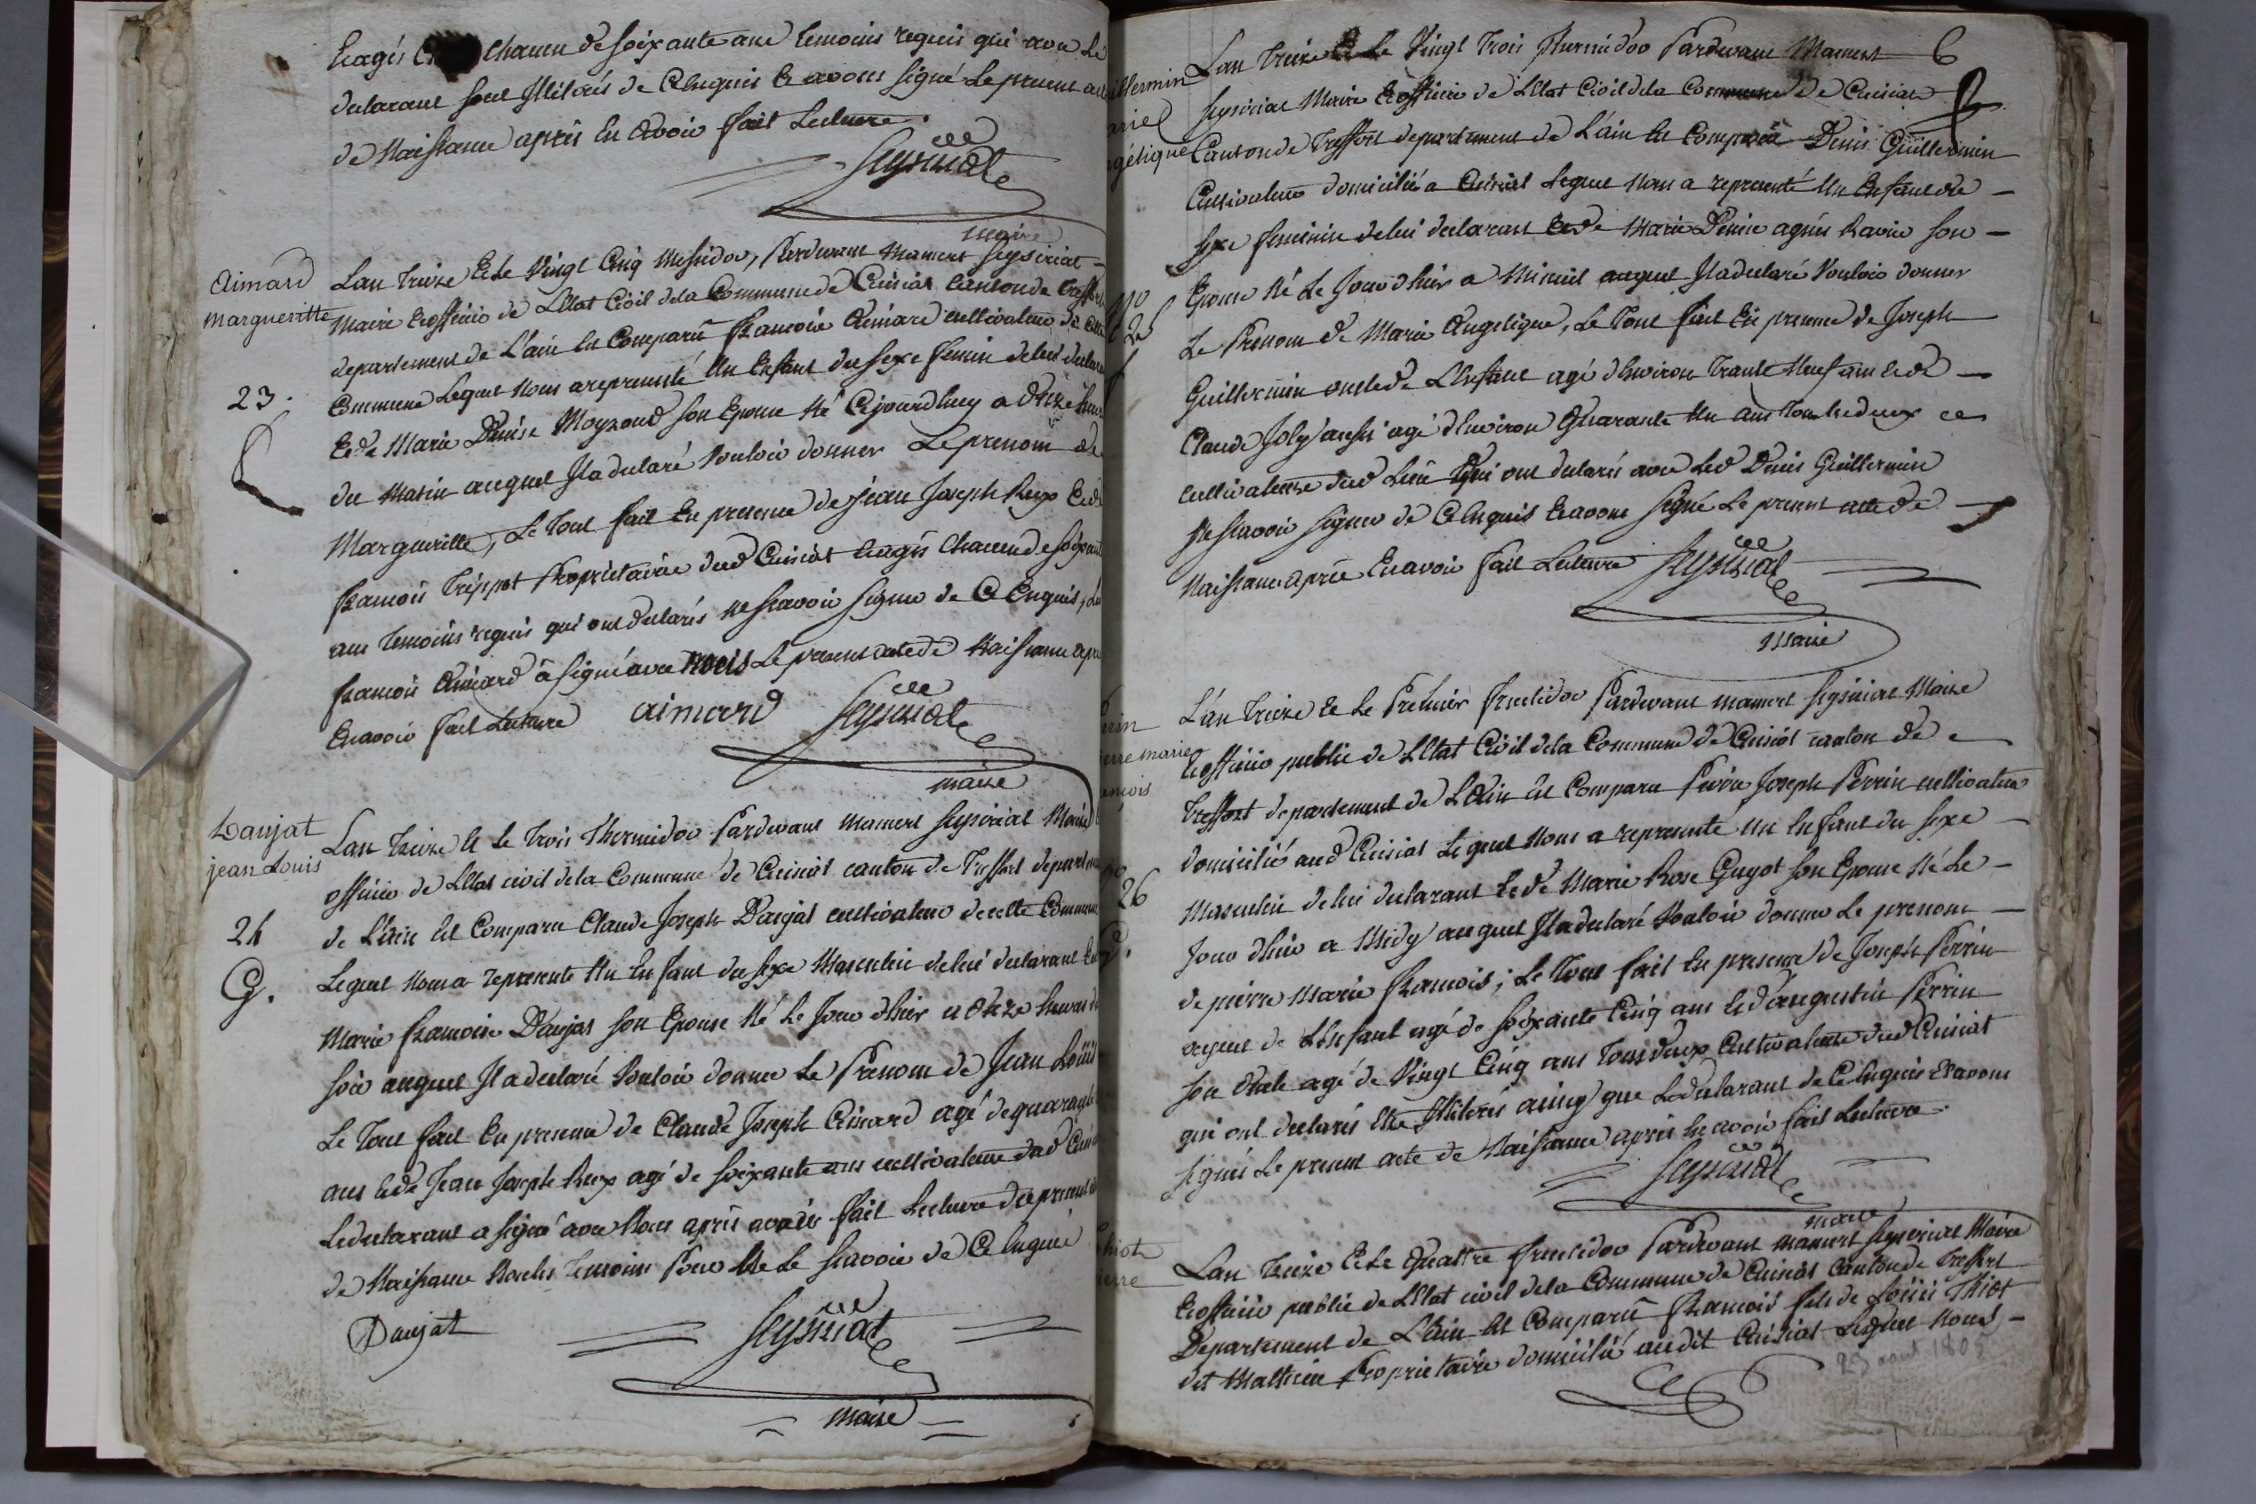 Eagés chacun de soixante ans temoins requis qui avec le
declarant sont Illitérés de Ce Enquis Et avons signé Le present acte
de Naissance après En avoir fait Lecture.
Seysiriat
maire
aimard
margueritte
23.
Lan treize Et Le Vingt Cinq Messidor, Pardevant Mamert Seysiriat
Maire Et officier de L'Etat Civil de la Commune de Cuisiat Canton de Treffort
departement de L'ain Est Comparu François Aimard cultivateur de cette
Commune Lequel Nous a representé Un Enfant du sexe feminin de lui declarant
Et de Marie Denise Moyzond son Epouse Né Cejourdhuy a Onze heures
du Matin auquel Il a declaré Vouloir donner Le prenom de
Margueritte, Le Tout fait En presence de Jean Joseph Reux Et de
François Trippot Proprietaire dud Cuisiat Eagés Chacun de soixante
ans Temoins requis qui ont declarés ne scavoir signer de Ce Enquis, Led
François Aimard a signé avec nous Le present acte de Naissance après
En avoir fait Lecture aimard Seysiriat
maire
Daujat
jean Louis
24
G.
Lan treize Et le Trois Thermidor Pardevant Mamert Seysiriat Maire
officier de LEtat civil de la Commune de Cuisiat canton de Treffort departement
de L'ain Est Comparu Claude Joseph Daujat cultivateur de cette Commune
Lequel Nous a representé Un Enfant du sexe Masculin de lui declarant Et de
Marie francoise Daujat son Epouse Né Le Jour dhier a Onze heures du
soir auquel Il a declaré Vouloir donner Le Prenom de Jean Loüis
Le Tout fait En presence de Claude Joseph Aimard agé de quarante
ans Et de Jean Joseph Reux agé de soixante ans cultivateurs dud Cuisiat
Le declarant a signé avec Nous après avoir fait Lecture du present acte
de Naissance Non les Temoins Pour Ne Le scavoir de Ce Enquis
Daujat Seysiriat
maire
6
illermin
arie
gélique
No
25
Lan treize Et Le Vingt Trois Thermidor Pardevant Mamert
Seysiriat Maire Et officier de LEtat Civil de la Commune de Cuisiat
Canton de Treffort departement de L'ain Est Comparu Denis Guillermin
Cultivateur domicilié a Cuisiat Lequel Nous a representé Un Enfant du
sexe feminin de lui declarant Et de Marie Denise agnés Ravier son
Epouse Né Le Jour dhier a Minuit auquel Il a declaré Vouloir donner
Le Prenom de Marie Angelique, Le Tout fait En presence de Joseph
Guillermin oncle de LEnfant agé dEnviron Trante Neuf ans Et de
Claude Joly aussi agé dEnviron Quarante Un ans Tous les deux
cultivateurs dud Lieu Qui ont declarés avec Led Denis Guillermin
Ne scavoir signer de Ce Enquis Et avons signé Le present acte de
Naissance après En avoir fait Lecture Seysiriat
Maire
rin
erre marie
ancois
No
26
L'an treize Et Le Premier fructidor Pardevant Mamert Seysiriat Maire
Et officier public de LEtat Civil de la Commune de Cuisiat canton de
Treffort departement de L'Ain Est Comparu Pierre Joseph Perrin cultivateur
domicilié aud Cuisiat Lequel Nous a representé Un Enfant du sexe
Masculin de lui declarant Et de Marie Rose Guyot son Epouse Né Le
Jour dhier a Midy auquel Il a declaré Vouloir donner Le prenom
de pierre Marie francois; Le Tout fait En presence de Joseph Perrin
ayeul de LEnfant agé de soixante Cinq ans Et d'augustin Perrin
son Oncle agé de Vingt Cinq ans Tous deux Cultivateurs dud Cuisiat
qui ont declarés Etre Illiterés ainsy que Le declarant de Ce Enquis Et avons
signés Le present acte de Naissance après En avoir fait Lecture.
Seysiriat
maire
hiot
erre
Lan treize Et Le Quattre fructidor Pardevant Mamert Seysiriat Maire
Et officier public de LEtat civil de la Commune de Cuisiat Canton de Treffort
Departement de L'Ain Est Comparu François fils de Loüis Thiot
dit Mathieu Proprietaire domicilié audit Cuisiat Lequel Nous
23 aout 1805